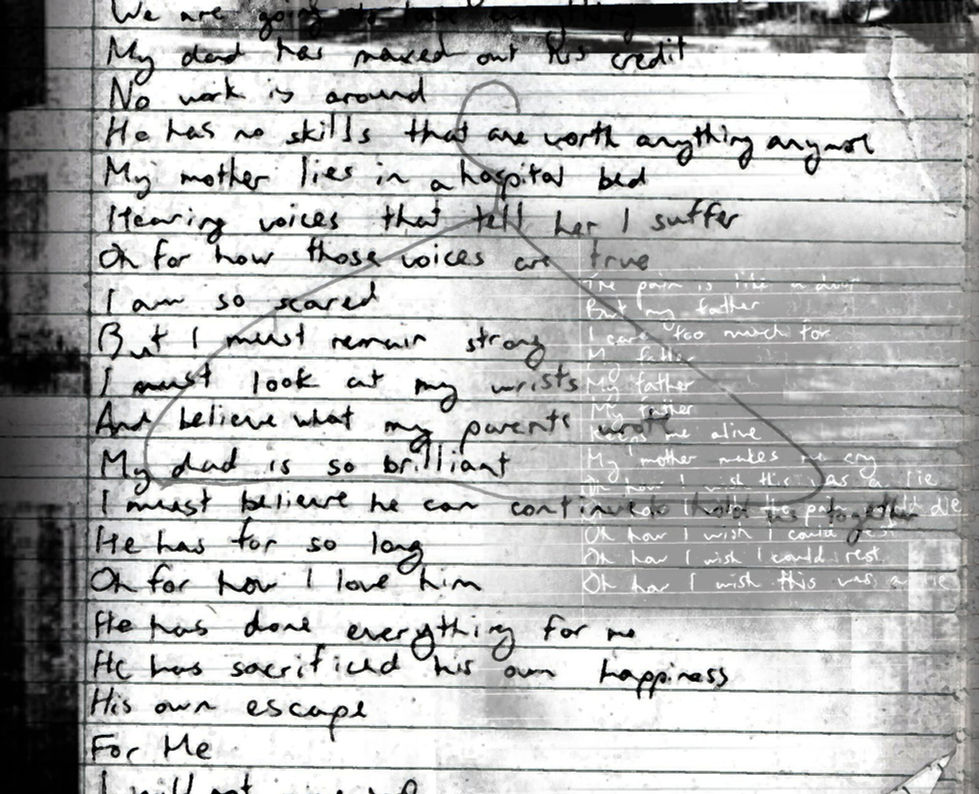 We are going to lose everything
My dad has maxed out his credit
No work is around
He has no skills that are worth anything anymore
My mother lies in a hospital bed
Hearing voices that tell her I suffer
Oh for how those voices are true
I am so scared
But I must remain strong
I must look at my wrists
And believe what my parents wrote
My dad is so brilliant
I must believe he can continue to hold us together
He has for so long
Oh for how I love him
He has done everything for me
He has sacrificed his own happiness
His own escape
For Me
I will not give up
The pain is like a
But my father
I care too much for
My father
My father
My father
Keeps me alive
My mother makes me cry
Oh how I wish this was a lie
Oh how I wish the pain would die
Oh how I wish I could rest
Oh how I wish I could rest.
Oh how I wish this was a lie